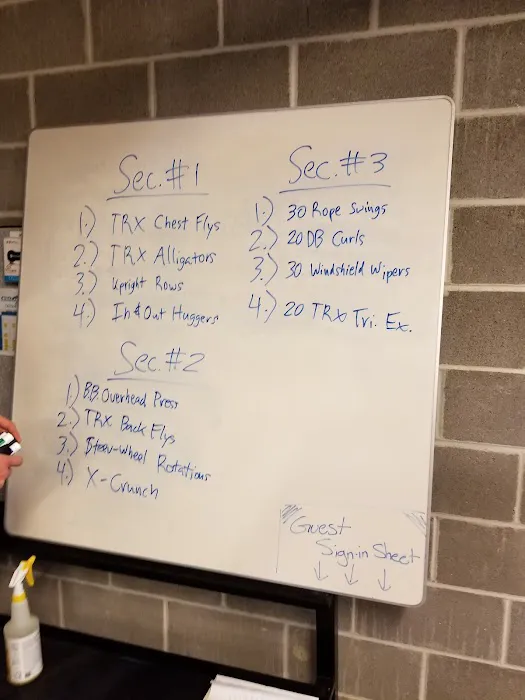 Sec. #1
1.) TRX Chest Flys
2.) TRX Alligators
3.) Upright Rows
4.) In & Out Huggers
Sec. #2
1.) B.B. Overhead Press
2.) TRX Back Flys
3.) Steer-Wheel Rotations
4.) X-Crunch
Sec. #3
1.) 30 Rope Swings
2.) 20 DB Curls
3.) 30 Windshield Wipers
4.) 20 TRX Tri. Ex.
Guest
Sign-in Sheet